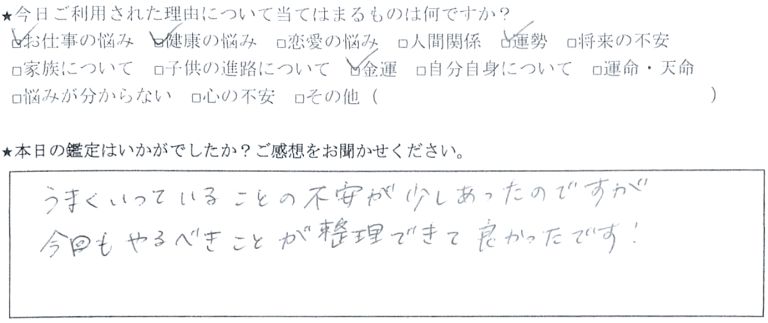 ★今日ご利用された理由について当てはまるものは何ですか？
☑お仕事の悩み ☑健康の悩み □恋愛の悩み □人間関係 ☑運勢 □将来の不安
□家族について □子供の進路について ☑金運 □自分自身について □運命・天命
□悩みが分からない □心の不安 □その他（ ）
★本日の鑑定はいかがでしたか？ご感想をお聞かせください。
うまくいっていることの不安が少しあったのですが
今回もやるべきことが整理できて良かったです！